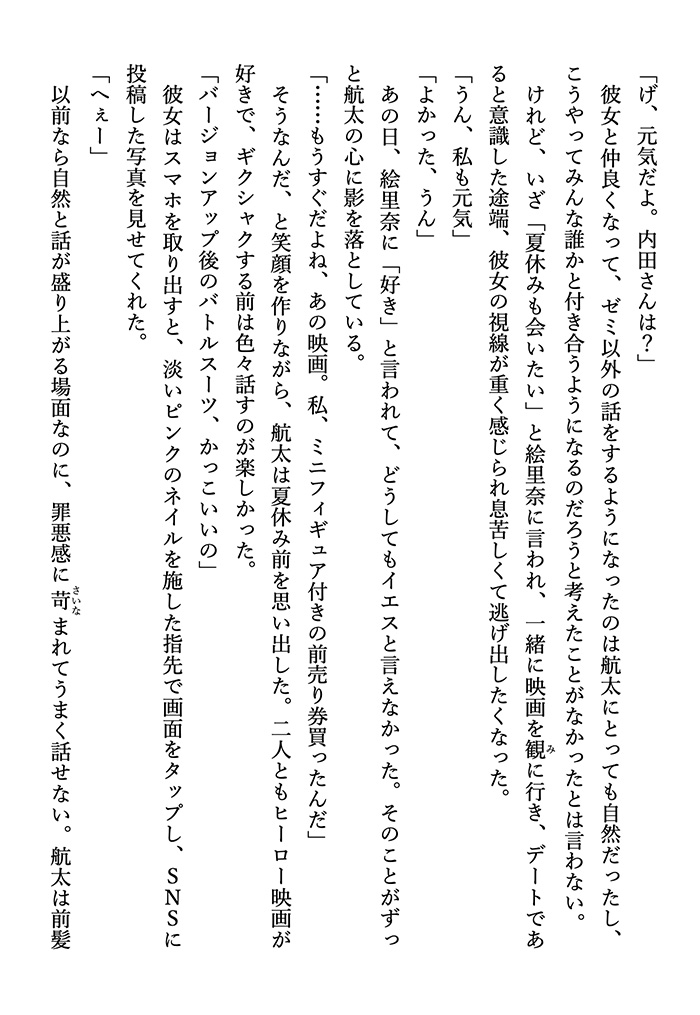 「げ、元気だよ。内田さんは？」
　彼女と仲良くなって、ゼミ以外の話をするようになったのは航太にとっても自然だったし、
こうやってみんな誰かと付き合うようになるのだろうと考えたことがなかったとは言わない。
　けれど、いざ「夏休みも会いたい」と絵里奈に言われ、一緒に映画を観に行き、デートであ
ると意識した途端、彼女の視線が重く感じられ息苦しくて逃げ出したくなった。
「うん、私も元気」
「よかった、うん」
　あの日、絵里奈に「好き」と言われて、どうしてもイエスと言えなかった。そのことがずっ
と航太の心に影を落としている。
「……もうすぐだよね、あの映画。私、ミニフィギュア付きの前売り券買ったんだ」
　そうなんだ、と笑顔を作りながら、航太は夏休み前を思い出した。二人ともヒーロー映画が
好きで、ギクシャクする前は色々話すのが楽しかった。
「バージョンアップ後のバトルスーツ、かっこいいの」
　彼女はスマホを取り出すと、淡いピンクのネイルを施した指先で画面をタップし、ＳＮＳに
投稿した写真を見せてくれた。
「へぇー」
　以前なら自然と話が盛り上がる場面なのに、罪悪感に苛まれてうまく話せない。航太は前髪
み
さいな